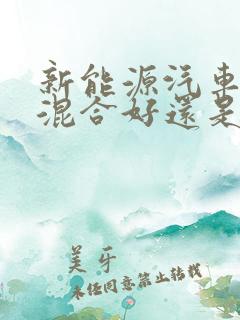 新能源汽車
混合好還是
美牙
未經同意禁止轉載